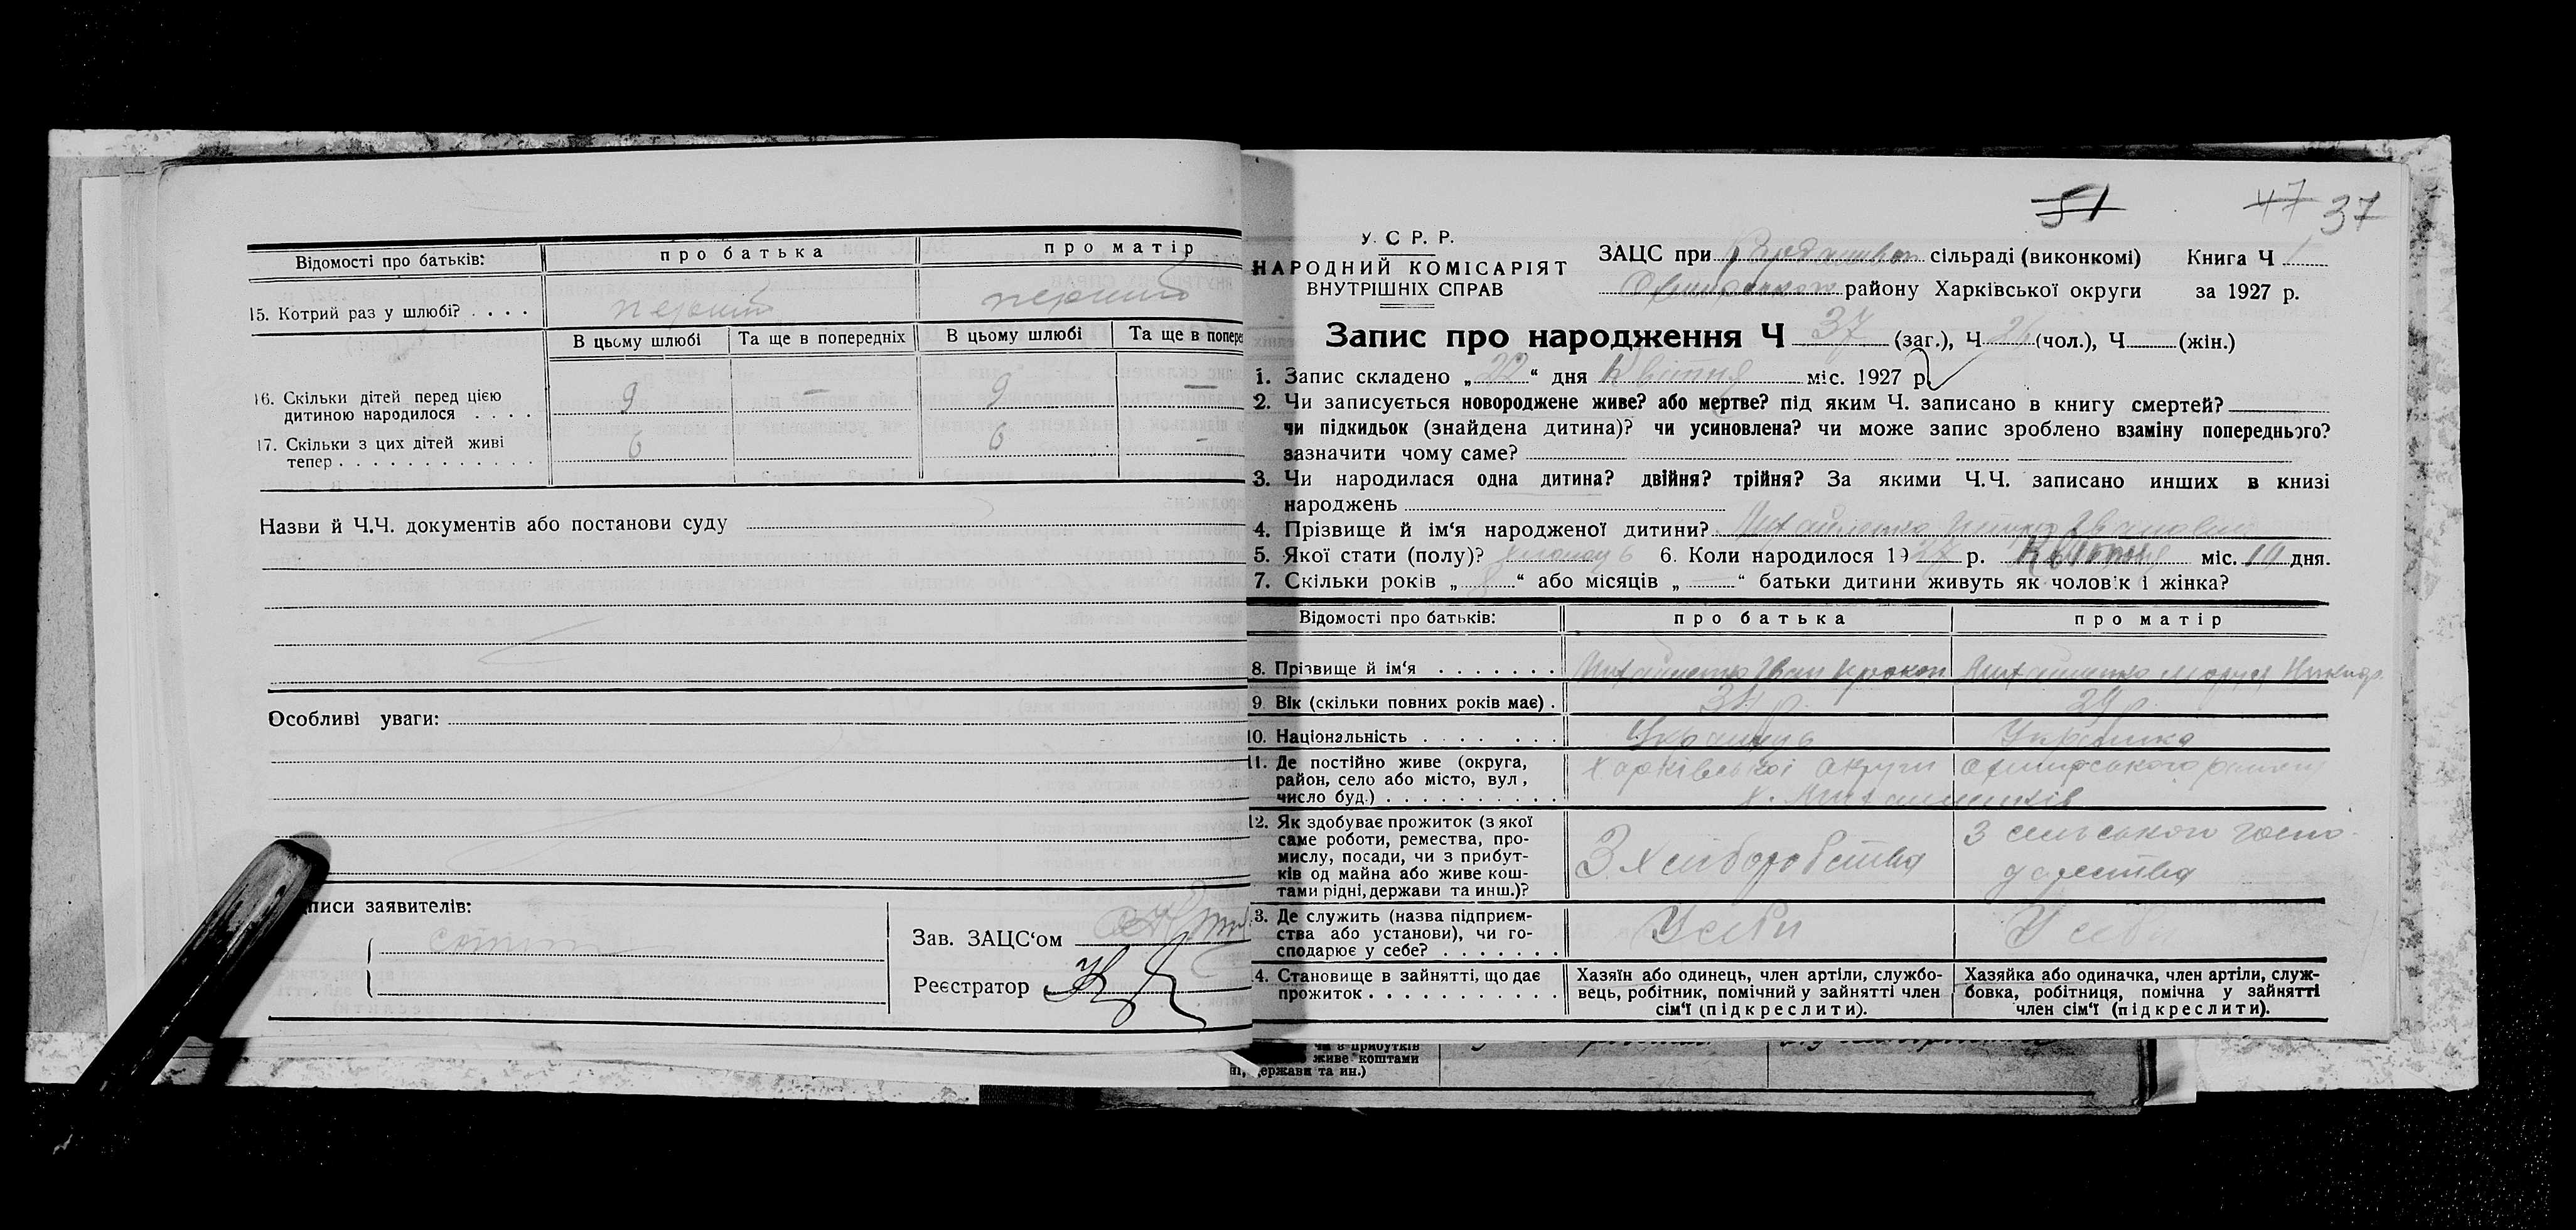 Відомості про батьків: про батька про матір
15. Котрий раз у шлюбі? . . . . перший перший
В цьому шлюбі Та ще в попередніх В цьому шлюбі Та ще в попере
16. Скільки дітей перед цією
дитиною народилося . . . . 9 — 9 —
17. Скільки з цих дітей живі
тепер . . . . . . . . . . . . 6 6 —
Назви й Ч.Ч. документів або постанови суду
Особливі уваги:
писи заявителів:
Зав. ЗАЦС‘ом
Реєстратор
51 47 37
У. С Р. Р.
НАРОДНИЙ КОМІСАРІЯТ
ВНУТРІШНІХ СПРАВ
ЗАЦС при сільраді (виконкомі) Книга Ч 1
району Харківської округи за 1927 р.
Запис про народження Ч 37 (заг.), Ч (чол.), Ч (жін.)
1. Запис складено „22“ дня Квітня міс. 1927 р.
2. Чи записується новороджене живе? або мертве? під яким Ч. записано в книгу смертей?
чи підкидьок (знайдена дитина)? чи усиновлена? чи може запис зроблено взаміну попереднього?
зазначити чому саме?
3. Чи народилася одна дитина? двійня? трійня? За якими Ч.Ч. записано инших в книзі
народжень
4. Прізвище й ім‘я народженої дитини?
5. Якої стати (полу)? 6. Коли народилося 1927 р. Квітня міс. дня.
7. Скільки років „ “ або місяців „—“ батьки дитини живуть як чоловік і жінка?
Відомості про батьків: про батька про матір
8. Прізвище й ім‘я . . . . . . . Іван
9. Вік (скільки повних років має) .
10. Національність . . . . . . . Українець Українка
11. Де постійно живе (округа,
район, село або місто, вул,
число буд.) . . . . . . . . . . Харківської округи
12. Як здобуває прожиток (з якої
саме роботи, ремества, про-
мислу, посади, чи з прибут-
ків од майна або живе кош-
тами рідні, держави та инш.)?
З хліборобства З сільського госпо-
дарства
3. Де служить (назва підприєм-
ства або установи), чи го-
сподарює у себе? . . . . . . . У себе У себе
4. Становище в зайнятті, що дає
прожиток . . . . . . . . . . .
Хазяїн або одинець, член артіли, службо-
вець, робітник, помічний у зайнятті член
сім‘ї (підкреслити).
Хазяйка або одиначка, член артіли, служ-
бовка, робітниця, помічна у зайнятті
член сім‘ї (підкреслити).
чи з прибутків
живе коштами
держави та ин.)